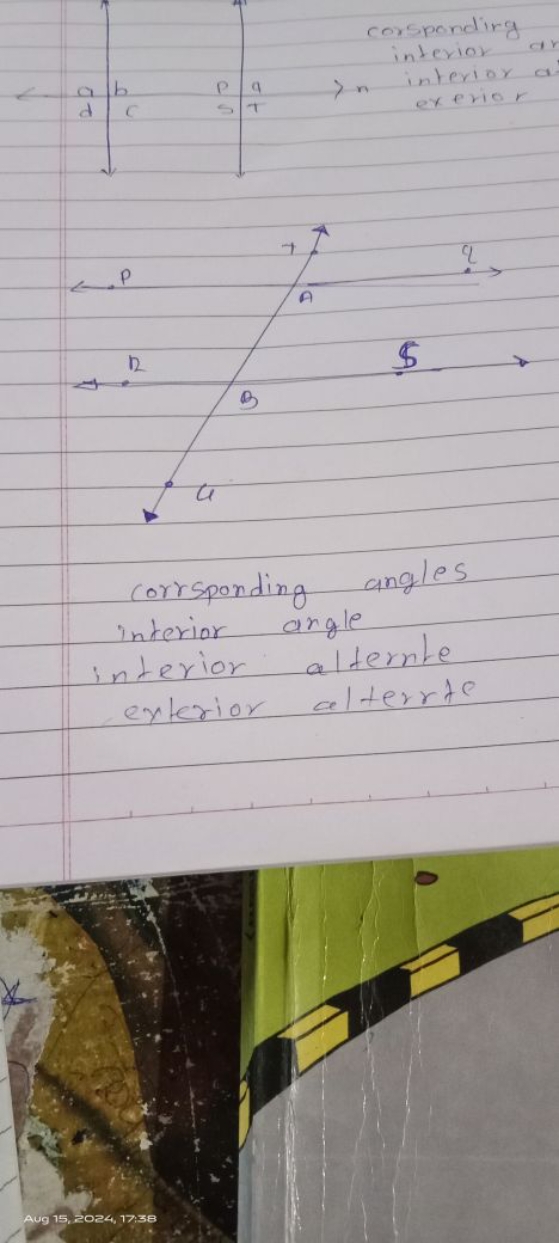 corsponding
interior an
interior al
exerior
a b
d c
p q
s T
n
T
P
q
A
R
S
B
u
corrsponding angles
interior angle
interior alternte
exterior alterrte
Aug 15, 2024, 17:38